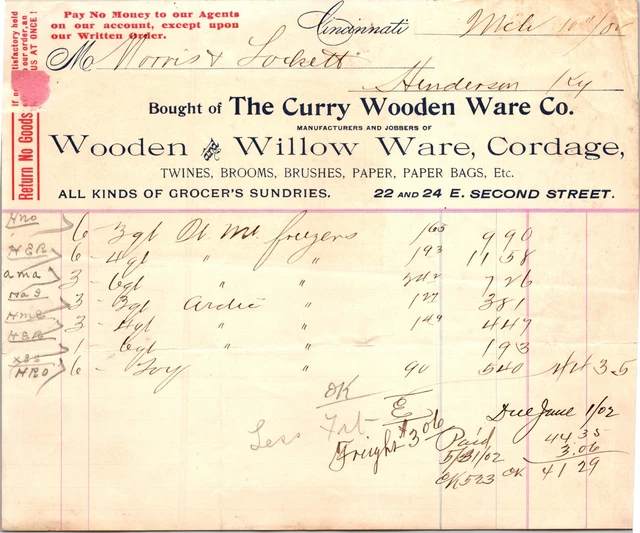 Pay No Money to our Agents
on our account, except upon
our Written Order.
Return No Goods
Cincinnati, Mch 10th/02
M Morris & Lockett
Henderson Ky
Bought of The Curry Wooden Ware Co.
MANUFACTURERS AND JOBBERS OF
Wooden and Willow Ware, Cordage,
TWINES, BROOMS, BRUSHES, PAPER, PAPER BAGS, Etc.
ALL KINDS OF GROCER'S SUNDRIES. 22 AND 24 E. SECOND STREET.
Hno 6 3gl Mt freezers 165 9 90
HER 6 4gl " " 193 11 58
ama 3 6gl " " 242 7 26
3 3gl Arctic " 127 3 81
Hme 3 4gl " " 149 4 47
HER 1 6gl " " 1 93
HRO 6 Toy " 90 5 40 44 35
OK
E
Less Frt
Freight $3.06
Due June 1/02
Paid 44 35
5/31/02 3.06
CK 523 OK 41 29